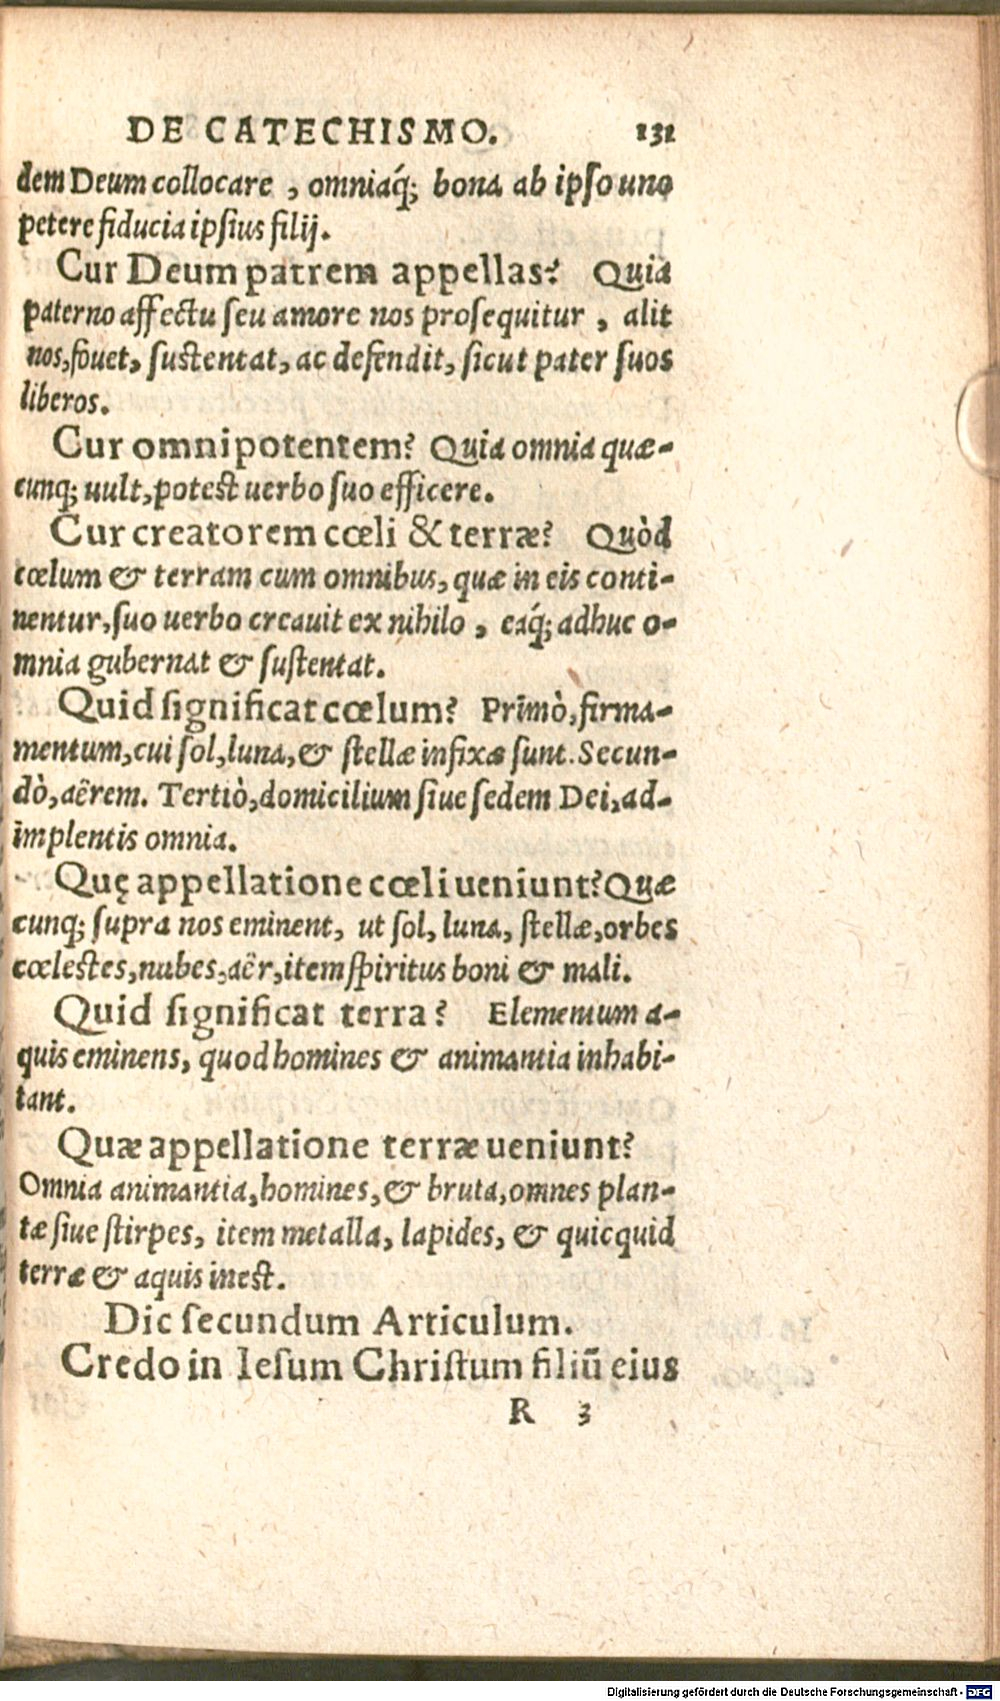 DE CATECHISMO. 131
dem Deum collocare, omniaq́; bona ab ipso uno
petere fiducia ipsius filij.
Cur Deum patrem appellas? Quia
paterno affectu seu amore nos prosequitur, alit
nos, fouet, sustentat, ac defendit, sicut pater suos
liberos.
Cur omnipotentem? Quia omnia quæ-
cunq; uult, potest uerbo suo efficere.
Cur creatorem cœli & terræ? Quòd
cœlum & terram cum omnibus, quæ in eis conti-
nentur, suo uerbo creauit ex nihilo, eaq́; adhuc o-
mnia gubernat & sustentat.
Quid significat cœlum? Primò, firma-
mentum, cui sol, luna, & stellæ infixæ sunt. Secun-
dò, aërem. Tertiò, domicilium siue sedem Dei, ad-
implentis omnia.
Quę appellatione cœli ueniunt? Quæ
cunq; supra nos eminent, ut sol, luna, stellæ, orbes
cœlestes, nubes, aër, item spiritus boni & mali.
Quid significat terra? Elementum a-
quis eminens, quod homines & animantia inhabi-
tant.
Quæ appellatione terræ ueniunt?
Omnia animantia, homines, & bruta, omnes plan-
tæ siue stirpes, item metalla, lapides, & quicquid
terræ & aquis inest.
Dic secundum Articulum.
Credo in Iesum Christum filiū eius
R 3
Digitalisierung gefördert durch die Deutsche Forschungsgemeinschaft - DFG